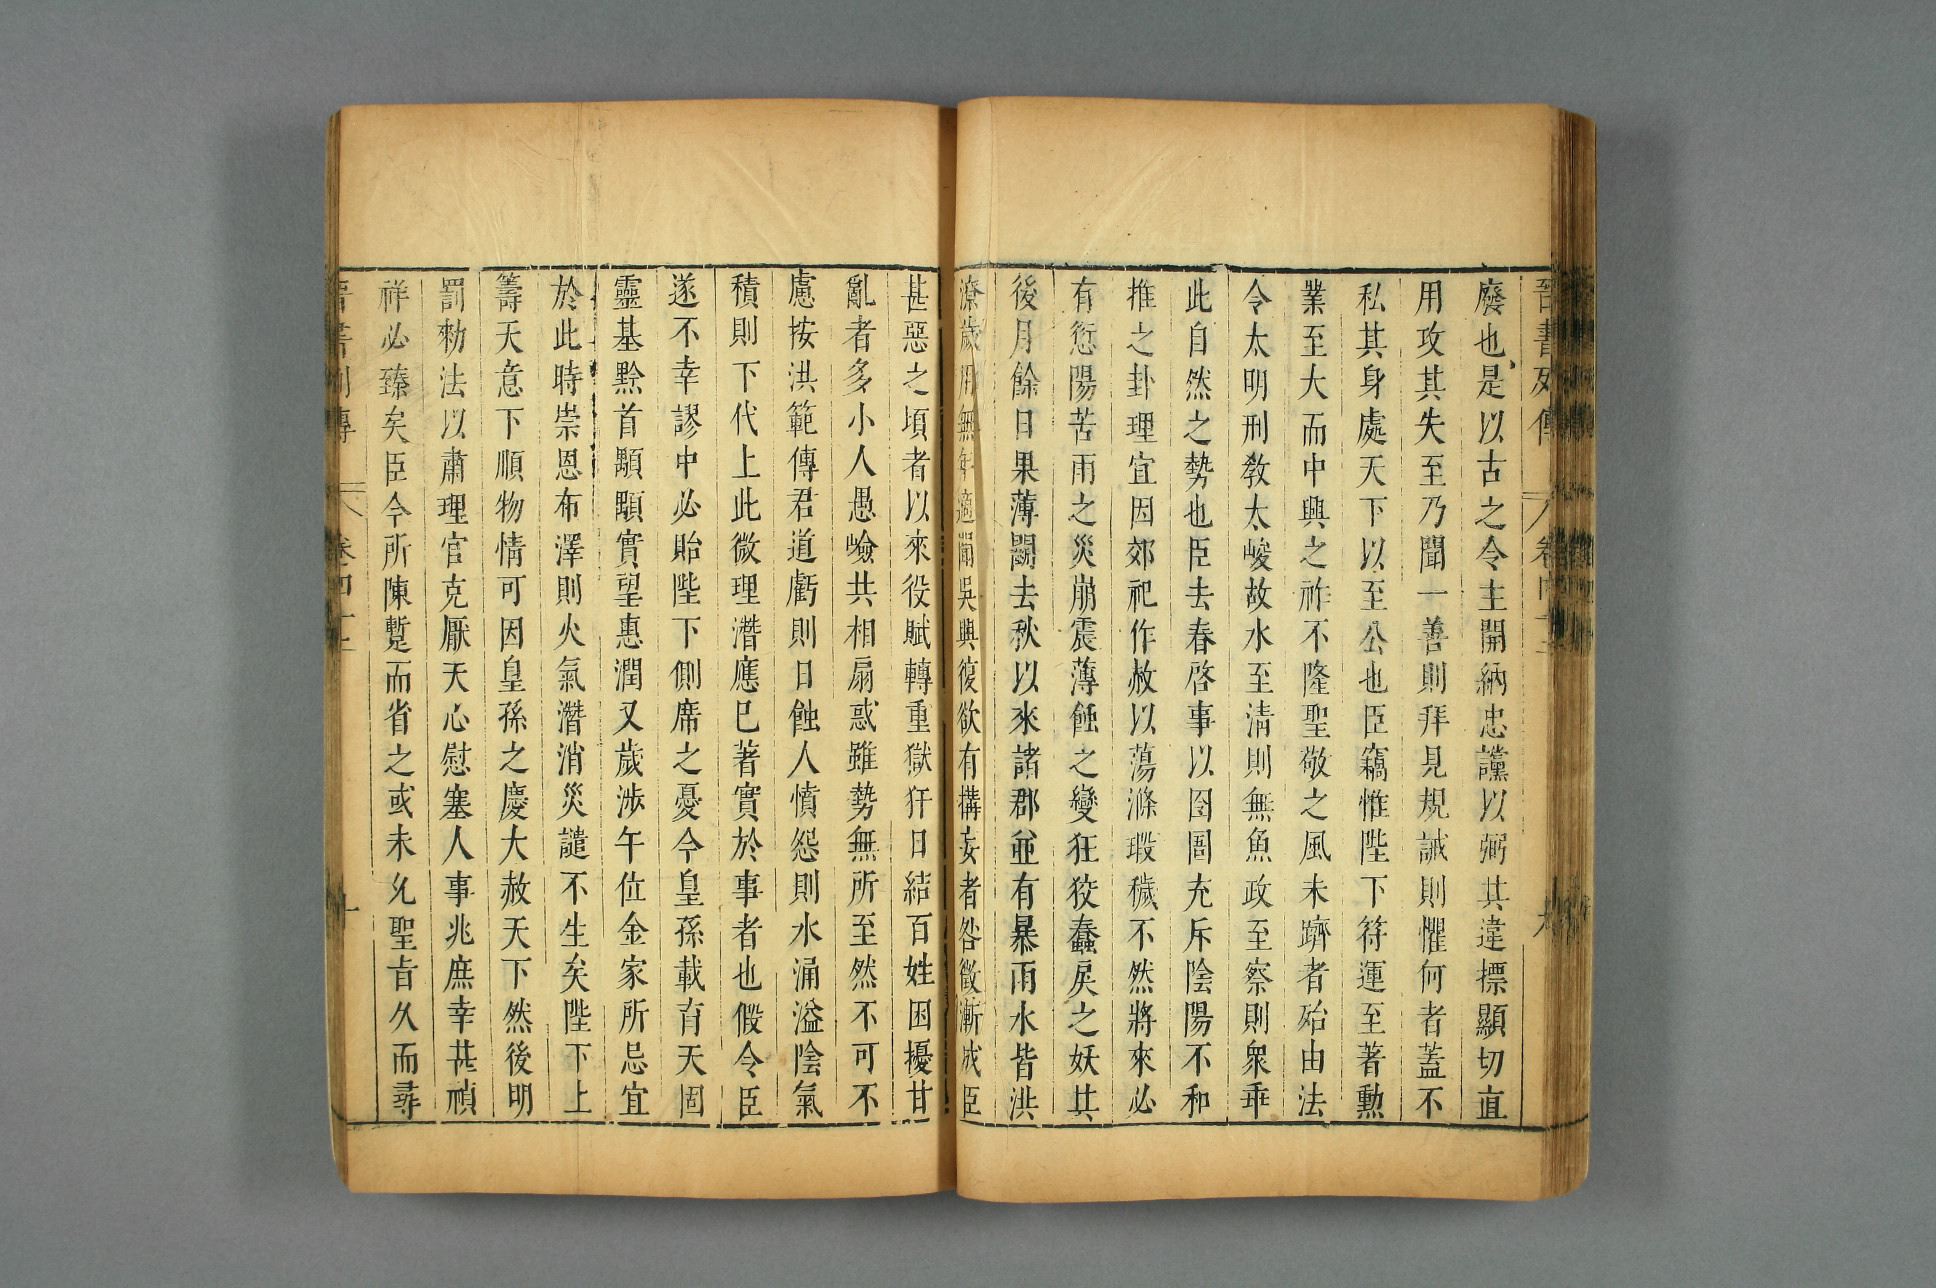 晉書列傳 卷四十二 九
廢也是以古之令主開納忠讜以弼其違標顯切直
用攻其失至乃聞一善則拜見規誡則懼何者蓋不
私其身處天下以至公也臣竊惟陛下符運至著勳
業至大而中興之祚不隆聖敬之風未躋者殆由法
令太明刑敎太峻故水至清則無魚政至察則衆乖
此自然之勢也臣去春啓事以囹圄充斥陰陽不和
推之卦理宜因郊祀作赦以蕩滌瑕穢不然將來必
有愆陽苦雨之災崩震薄蝕之變狂狡蠢戾之妖其
後月餘日果薄鬭去秋以來諸郡並有暴雨水皆洪
潦歲用無年適聞吳興復欲有搆妄者咎徵漸成臣
甚惡之頃者以來役賦轉重獄犴日結百姓困擾甘
亂者多小人愚嶮共相扇惑雖勢無所至然不可不
慮按洪範傳君道虧則日蝕人憤怨則水涌溢陰氣
積則下代上此微理潛應已著實於事者也假令臣
遂不幸謬中必貽陛下側席之憂今皇孫載育天固
靈基黔首顒顒實望惠潤又歲涉午位金家所忌宜
於此時崇恩布澤則火氣潛消災譴不生矣陛下上
籌天意下順物情可因皇孫之慶大赦天下然後明
罰勑法以肅理官克厭天心慰塞人事兆庶幸甚禎
祥必臻矣臣今所陳蹔而省之或未允聖旨久而尋
晉書列傳 卷四十二 十